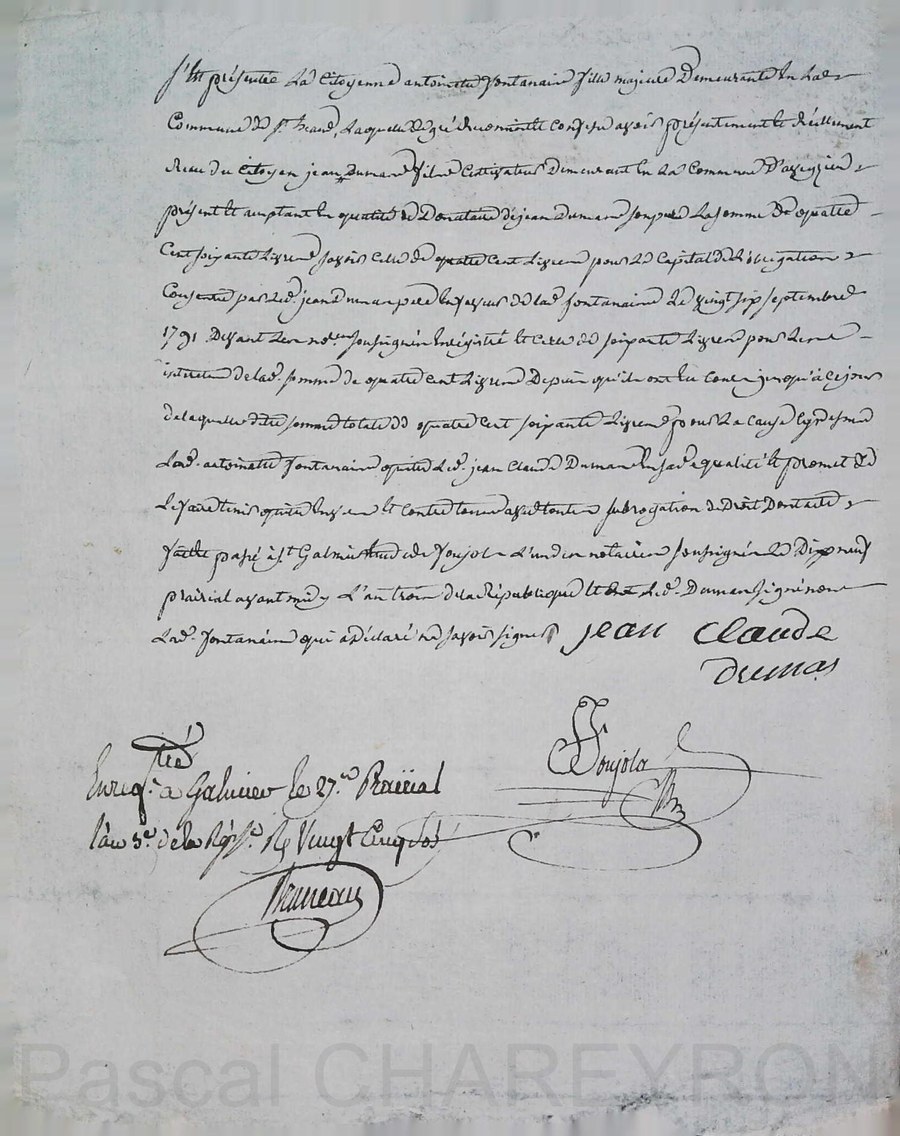 S'est présentée La Citoyenne antoinette fontanaire fille majeure Demeurante en La
Commune de st. Laquelle de gré Reconnoit et Confesse avoir présentement et Réellement
Receu du Citoyen jean Dumas fils Cultivateur Demeurant en La Commune D'aveizieu
présent et aceptant en qualité de Donataire de jean Dumas son pere La somme de quatre
Cent soixante Livres savoir Celle de quatre Cent Livres pour Le Capital de L'obligation
Consentie par Led. jean dumas pere en faveur de lad. fontanaire Le vingt six septembre
1791. Devant L'un no.res soussignés enregistré et Celle de soixante Livres pour Les
interets de lad. somme de quatre Cent Livres Depuis qu'ils ont eu Cours jusqu'à Ce jour
de laquelle dite somme totale de quatre Cent soixante Livres pour La Cause
Lad. antoinette fontanaire quitte Led. jean Claude Dumas en sad. qualité et promet de
Le faire tenir quitte envers et Contre tous avec toute subrogation de Droit Dont acte
fait et passé à st. Galmier Etude de Soujol L'un des notaires soussignés Le Dix neuf
prairial avant midy L'an trois de la République et Led. Dumas signé non
Lad. fontanaire qui a déclaré ne savoir signer jean Claude
Dumas
Soujol
Enregtré. à Galmier le 27.e Prairial
l'an 3.e de la Rép. R. Vingt Cinq sols
Bruneau
Pascal CHAREYRON